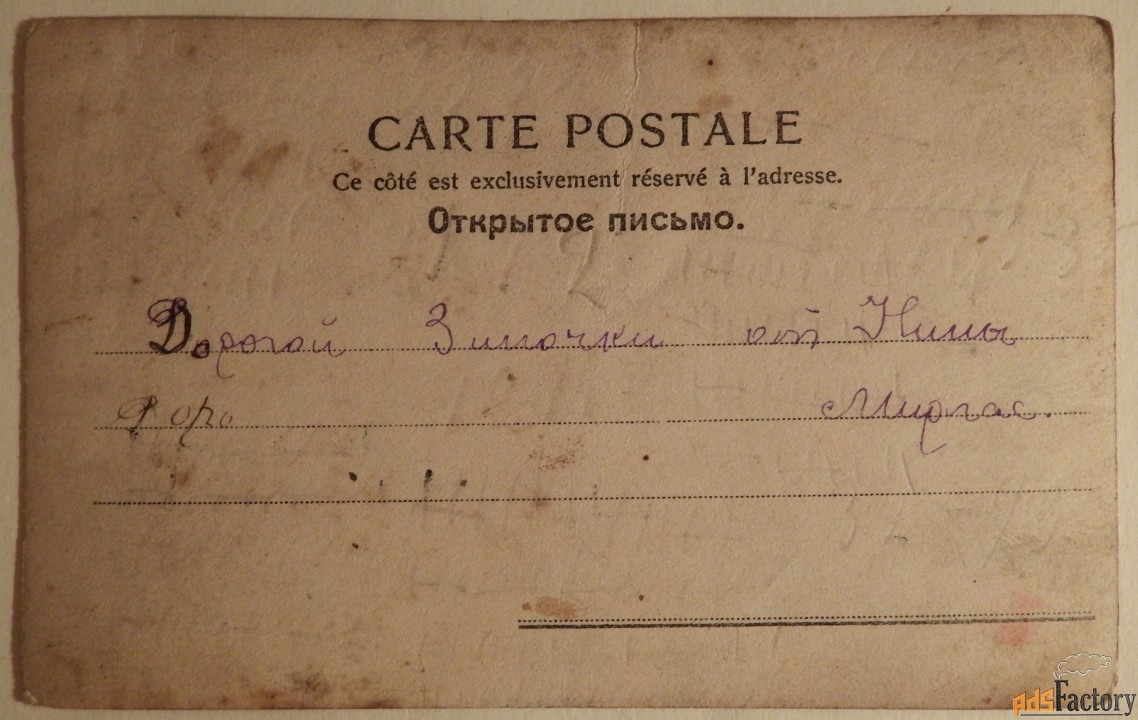 CARTE POSTALE
Ce côté est exclusivement réservé à l'adresse.
Открытое письмо.
Дорогой Зиночки от Нины
Доро
adsFactory